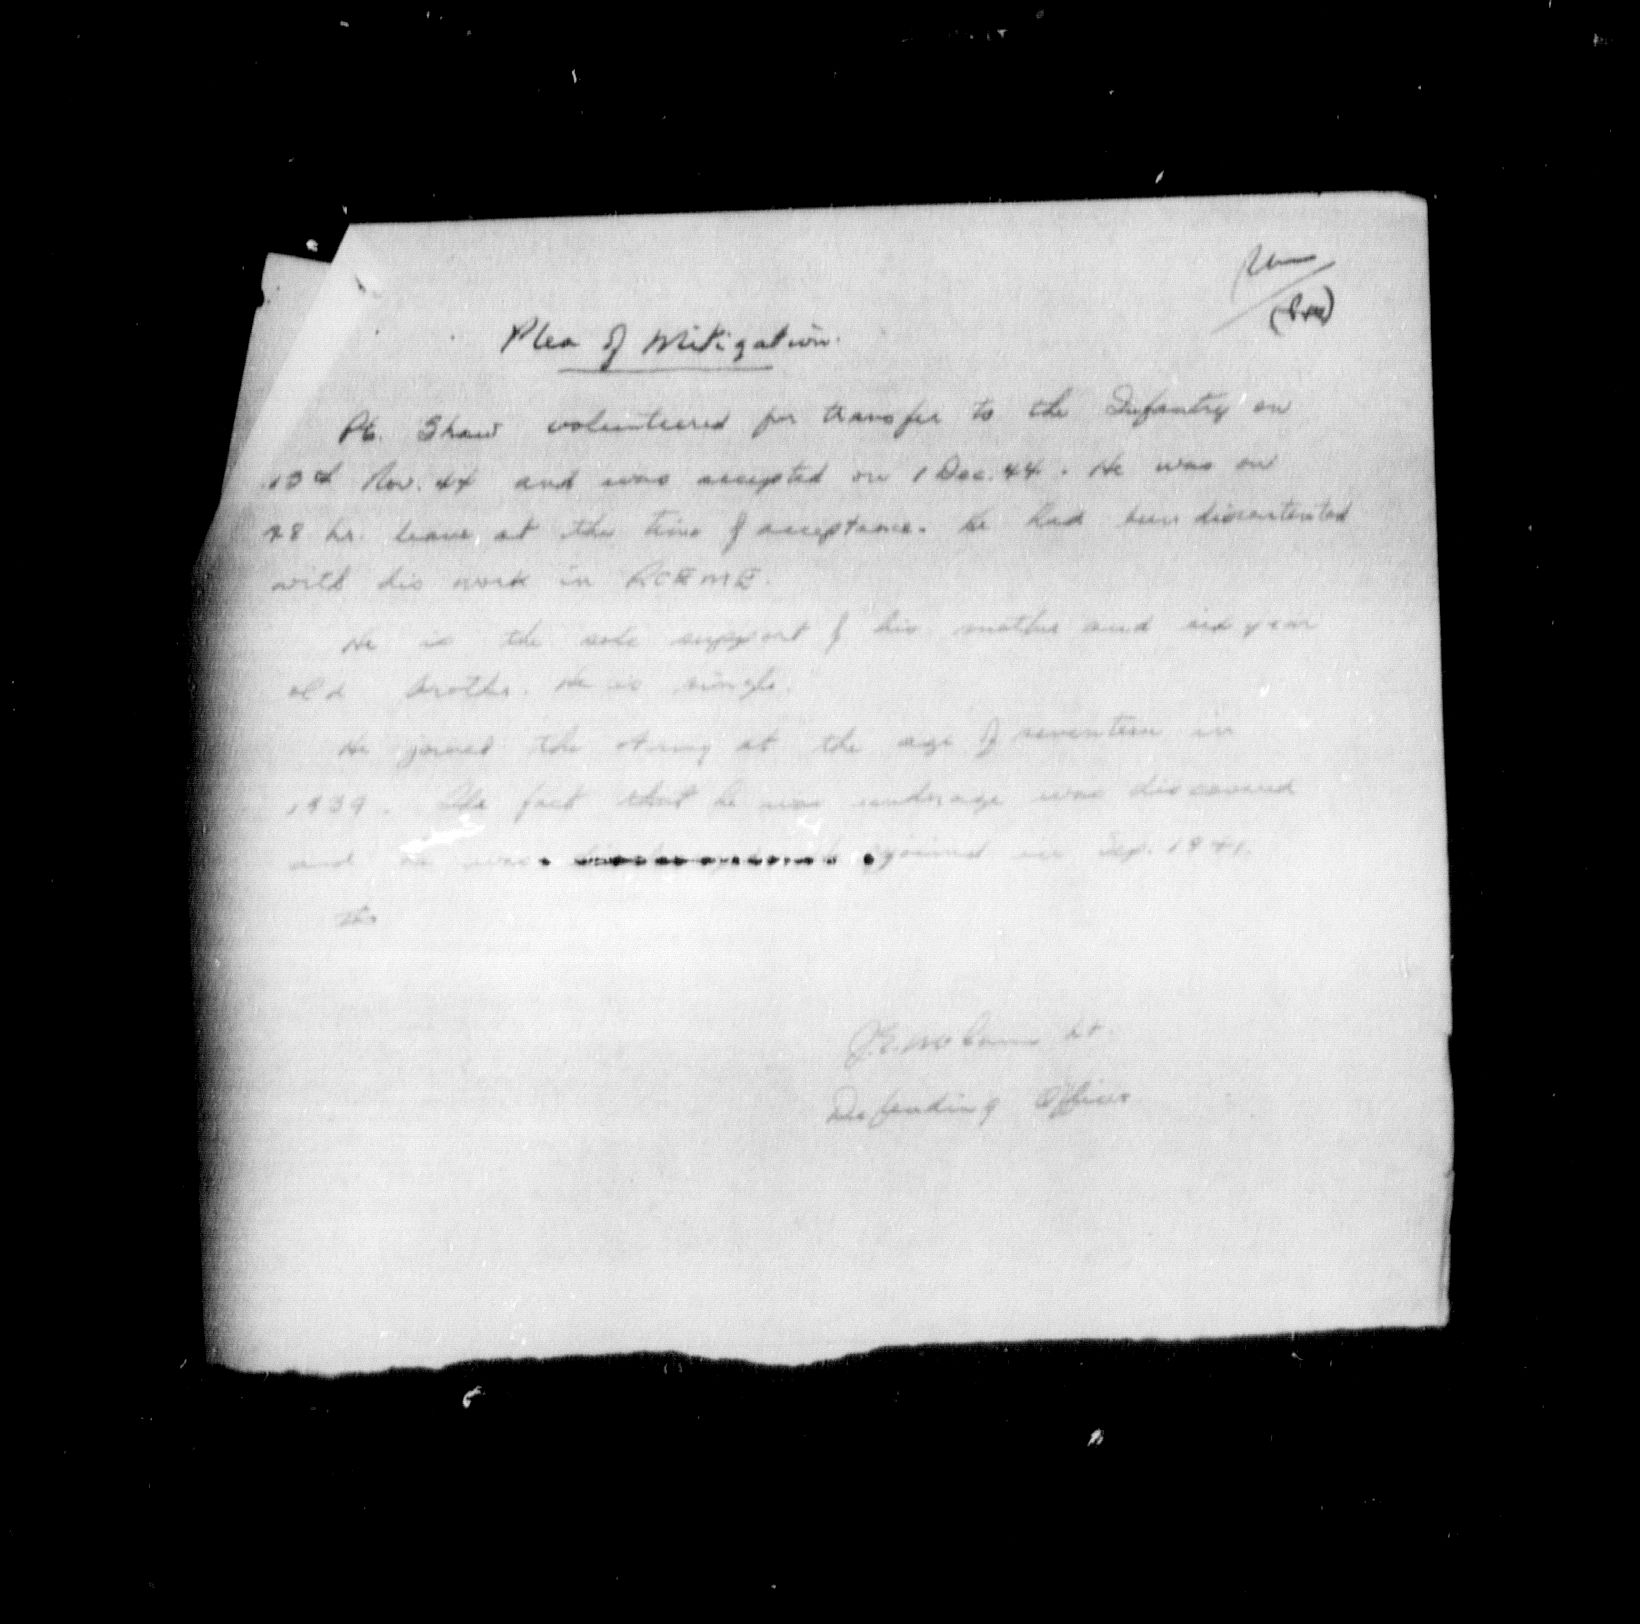 Plea of Mitigation.
Pte. Shaw volunteered for transfer to the Infantry on
Nov. 44 and was accepted on 1 Dec. 44. He was on
48 hr. leave at the time of acceptance. He had been discontented
with his work in RCEME.
He is the sole support of his mother and six year
old brother. He is single.
He joined the Army at the age of seventeen in
1939. The fact that he was underage was discovered
and he was discharged. He rejoined in Sep. 1941.
Lt.
Defending Officer